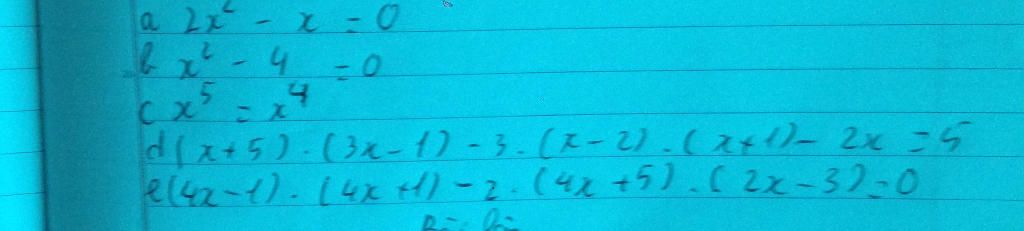 a 2x² - x = 0
b x² - 4 = 0
c x⁵ = x⁴
d (x+5) . (3x-1) - 3 . (x-2) . (x+1) - 2x = 5
e (4x-1) . (4x+1) - 2 . (4x+5) . (2x-3) = 0